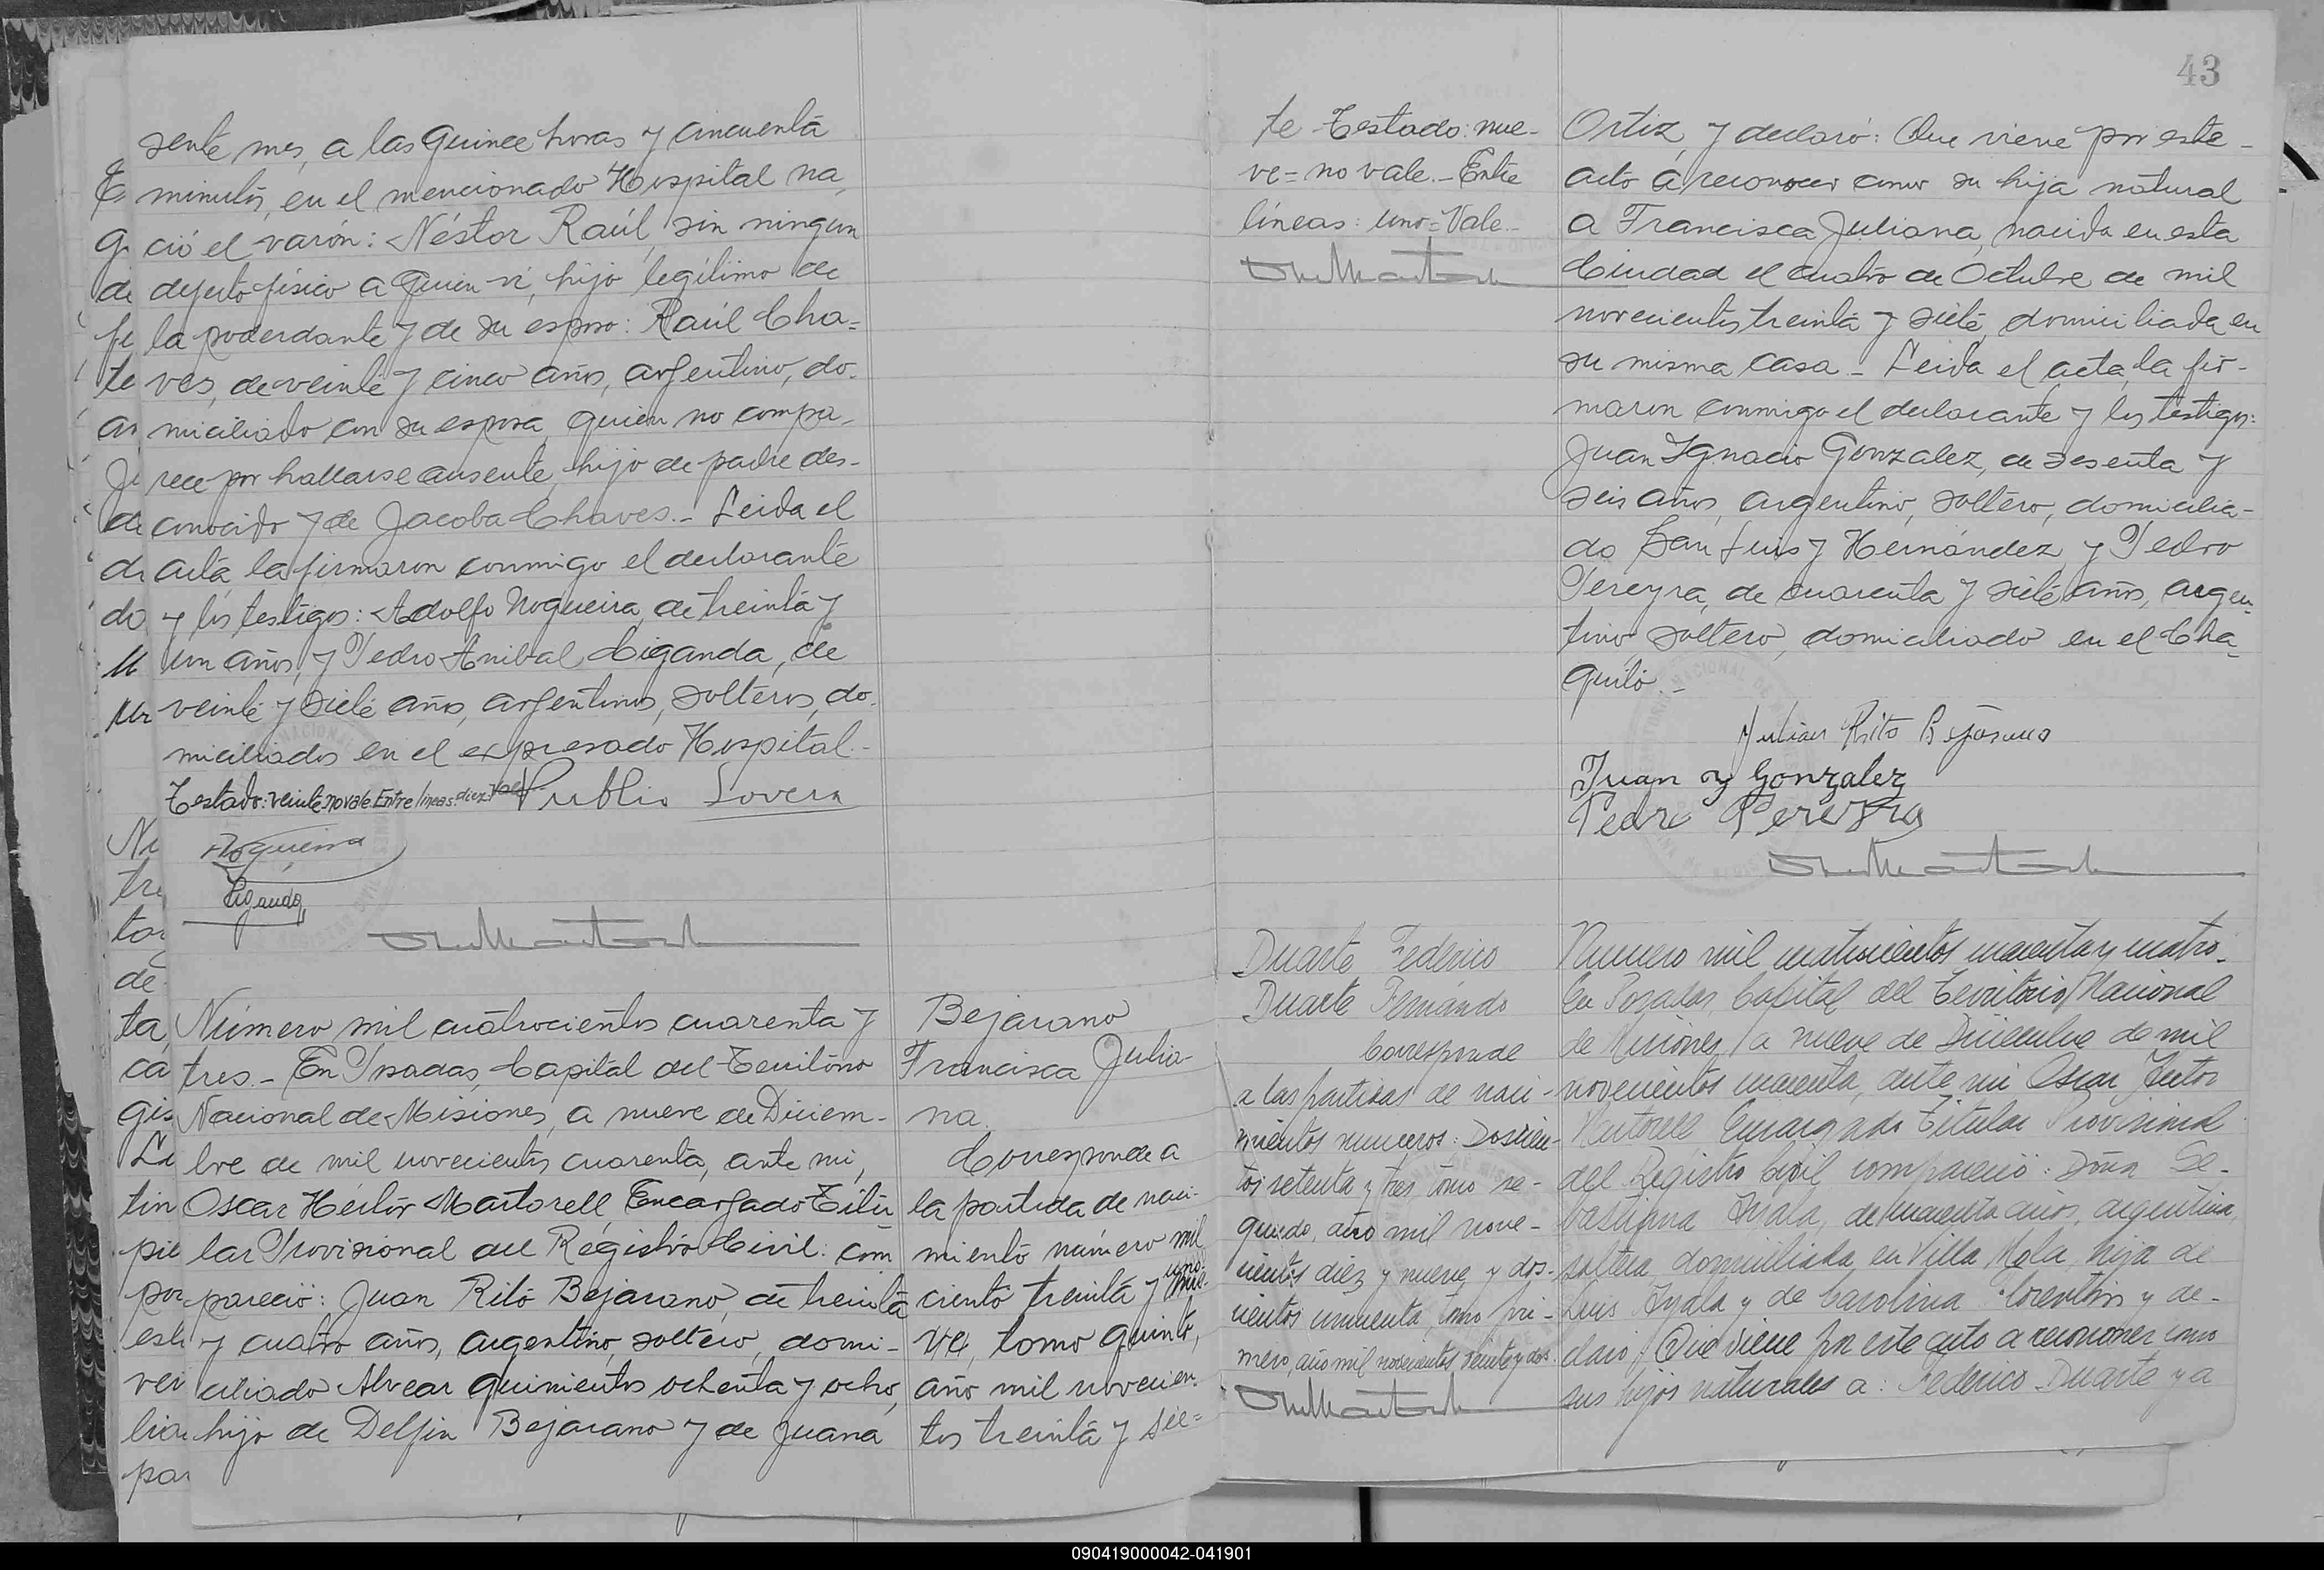 sente mes, a las quince horas y cincuenta
minutos, en el mencionado Hospital na-
ció el varón: Néstor Raúl, sin ningun
defecto físico a quien ví, hijo legítimo de
la poderdante y de su esposo: Raúl Cha=
ves, de veinte y cinco años, argentino, do-
miciliado con su esposa, quien no compa-
rece por hallarse ausente, hijo de padre des-
conocido y de Jacoba Chaves.- Leida el
acta la firmaron conmigo el declarante
y los testigos: Adolfo Nogueira, de treinta y
un años, y Pedro Anibal Ciganda, de
veinte y siete años, argentinos, solteros, do-
miciliados en el expresado Hospital.-
Testado: veinte no vale. Entre lineas: diez Vale
Publio Lovera
ANogueira
Ciganda
Número mil cuatrocientos cuarenta y
tres.- En Posadas, Capital del Territorio
Nacional de Misiones, a nueve de Diciem-
bre de mil novecientos cuarenta, ante mi,
Oscar Héctor Martorell Encargado Titu-
lar Provisional del Registro Civil: com
pareció: Juan Rito Bejarano, de treinta
y cuatro años, argentino, soltero, domi-
ciliado Alvear quinientos ochenta y ocho,
hijo de Delfin Bejarano y de Juana
Bejarano
Francisca Julia-
na.
Corresponde a
la partida de naci-
miento número mil
ciento treinta y uno nue-
ve, tomo quinto,
año mil novecien-
tos treinta y sie=
43
te Testado: nue-
ve= no vale.- Entre
líneas: uno= Vale.-
Ortiz, y declaró: Que viene por este
acto á reconocer como su hija natural
a Francisca Juliana, nacida en esta
Ciudad el cuatro de Octubre de mil
novecientos treinta y siete, domiciliada en
su misma casa.- Leida el acta, la fir-
maron conmigo el declarante y los testigos:
Juan Ignacio Gonzalez, de sesenta y
seis años, argentino, soltero, domicilia-
do San Luis y Hernández, y Pedro
Pereyra, de cuarenta y siete años, argen-
tino, soltero, domiciliado en el Cha-
quito.-
Rito Bejarano
Juan y Gonzalez
Pedro Pereyra
Duarte Federico
Duarte Fernándo
Corresponde
a las partidas de naci-
mientos numeros: Doscien-
tos setenta y tres tomo se-
gundo, año mil nove-
cientos diez y nueve y dos-
cientos cincuenta, tomo pri-
mero, año mil novecientos veinte y dos.
Numero mil cuatrocientos cuarenta y cuatro.
En Posadas, Capital del Territorio Nacional
de Misiones, a nueve de Diciembre de mil
novecientos cuarenta, ante mi Oscar Hector
Martorell Encargado Titular Provisional
del Registro Civil compareció: Doña Se-
bastiana Ayala, de cuarenta años, argentina,
soltera, domiciliada en Villa Mola, hija de
Luis Ayala y de Carolina Florentin y de-
claró: Que viene por este acto a reconocer como
sus hijos naturales a: Federico Duarte y a
090419000042-041901